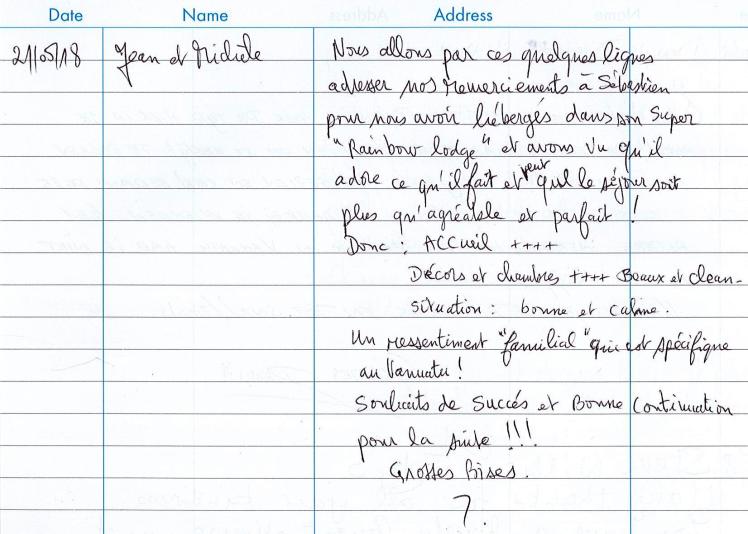 Date Name Address
21/05/18 Jean et Nous allons par ces quelques lignes
adresser nos remerciements à Sébastien
pour nous avoir hébergés dans son Super
"Rainbow lodge" et avons vu qu'il
adore ce qu'il fait et veut que le séjour soit
plus qu'agréable et parfait !
Donc : ACCUEIL ++++
Décors et chambres ++++ Beaux et clean-
situation : bonne et calme.
Un ressentiment "familial" qui est spécifique
au Vanuatu !
Souhaits de Succés et Bonne Continuation
pour la suite !!!
Grosses Bises.